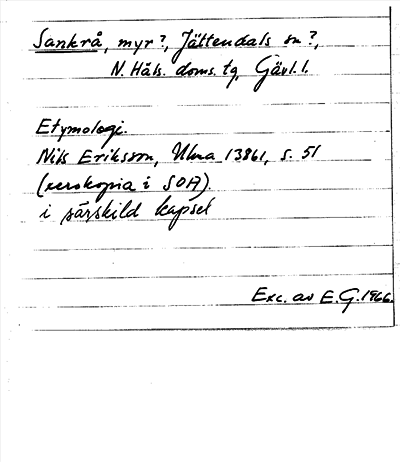 Sankrå, myr?, Jättendals sn?,
N. Häls. doms. tg, Gävl. l.
Etymologi.
Nils Eriksson, Ulma 13861, s. 51
(xerokopia i SOA).
i särskild kapsel
Exc. av E. G. 1966.